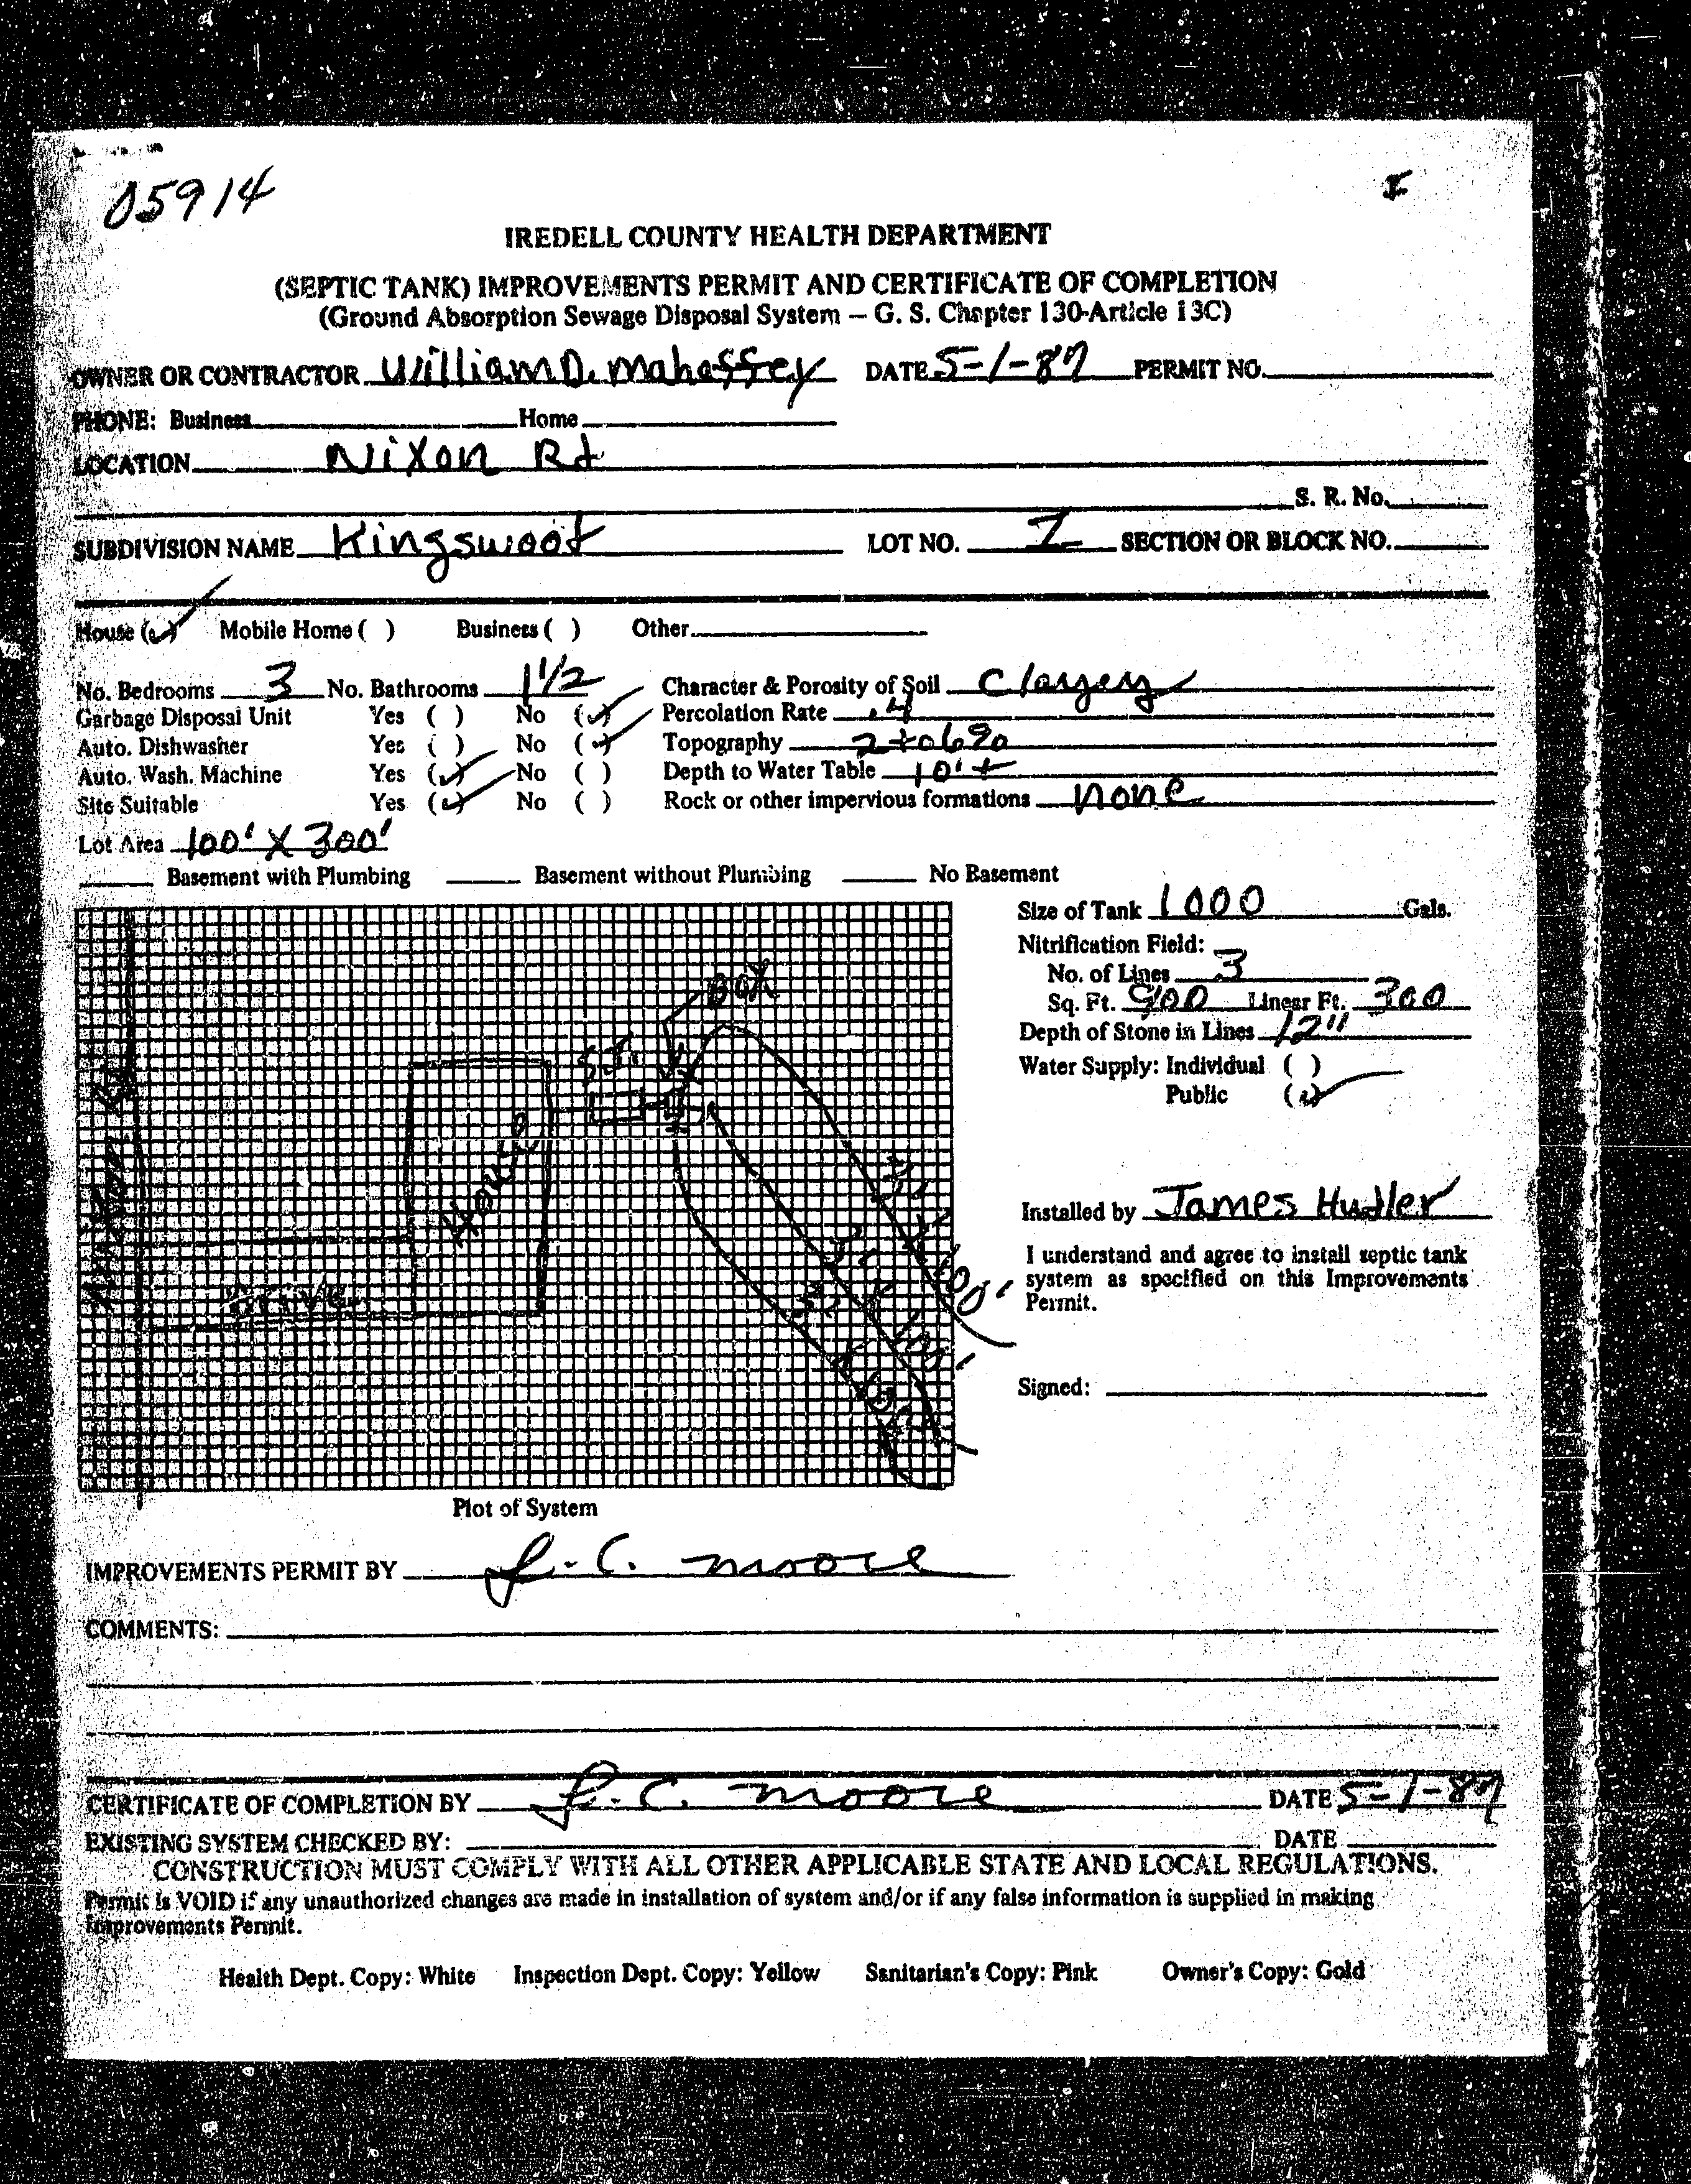 05914
I
IREDELL COUNTY HEALTH DEPARTMENT
(SEPTIC TANK) IMPROVEMENTS PERMIT AND CERTIFICATE OF COMPLETION
(Ground Absorption Sewage Disposal System – G. S. Chapter 130-Article 13C)
OWNER OR CONTRACTOR William D. Mahaffey DATE 5-1-87 PERMIT NO.
PHONE: Business Home
LOCATION Nixon Rd
S. R. No.
SUBDIVISION NAME Kingswood LOT NO. SECTION OR BLOCK NO.
House (✓) Mobile Home ( ) Business ( ) Other
No. Bedrooms 3 No. Bathrooms 1 1/2 Character & Porosity of Soil Clayey
Garbage Disposal Unit Yes ( ) No (✓) Percolation Rate .4
Auto. Dishwasher Yes ( ) No (✓) Topography 2 to 6%
Auto. Wash. Machine Yes (✓) No ( ) Depth to Water Table 10' +
Site Suitable Yes (✓) No ( ) Rock or other impervious formations none
Lot Area 100' X 300'
Basement with Plumbing Basement without Plumbing No Basement
Size of Tank 1000 Gals.
Nitrification Field:
No. of Lines 3
Sq. Ft. 900 Linear Ft. 300
Depth of Stone in Lines 12"
Water Supply: Individual ( )
Public (✓)
BOX
S.T.
House
Nixon Rd
Drive
3' X 100'
3' X 100'
Installed by James Hudler
I understand and agree to install septic tank
system as specified on this Improvements
Permit.
Signed:
Plot of System
IMPROVEMENTS PERMIT BY J.C. Moore
COMMENTS:
CERTIFICATE OF COMPLETION BY J.C. Moore DATE 5-1-87
EXISTING SYSTEM CHECKED BY: DATE
CONSTRUCTION MUST COMPLY WITH ALL OTHER APPLICABLE STATE AND LOCAL REGULATIONS.
Permit is VOID if any unauthorized changes are made in installation of system and/or if any false information is supplied in making
Improvements Permit.
Health Dept. Copy: White Inspection Dept. Copy: Yellow Sanitarian's Copy: Pink Owner's Copy: Gold